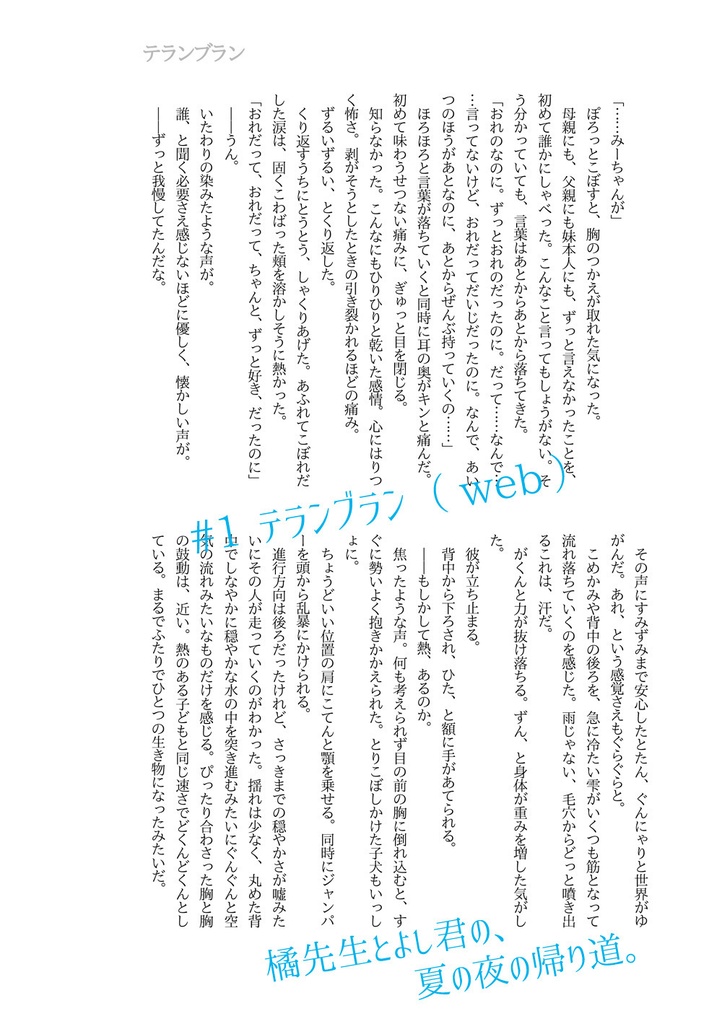 テランブラン
「……みーちゃんが」
ぽろっとこぼすと、胸のつかえが取れた気になった。
母親にも、父親にも妹本人にも、ずっと言えなかったことを、
初めて誰かにしゃべった。こんなこと言ってもしょうがない。そ
う分かっていても、言葉はあとからあとから落ちてきた。
「おれのなのに。ずっとおれのだったのに。だって……なんで…
…言ってないけど、おれだってだいじだったのに。なんで、あい
つのほうがあとなのに、あとからぜんぶ持っていくの……」
ほろほろと言葉が落ちていくと同時に耳の奥がキンと痛んだ。
初めて味わうせつない痛みに、ぎゅっと目を閉じる。
知らなかった。こんなにもひりひりと乾いた感情。心にはりつ
く怖さ。剥がそうとしたときの引き裂かれるほどの痛み。
ずるいずるい、とくり返した。
くり返すうちにとうとう、しゃくりあげた。あふれてこぼれだ
した涙は、固くこわばった頬を溶かしそうに熱かった。
「おれだって、おれだって、ちゃんと、ずっと好き、だったのに」
――うん。
いたわりの染みたような声が。
誰、と聞く必要さえ感じないほどに優しく、懐かしい声が。
――ずっと我慢してたんだな。
#1 テランブラン（web）
その声にすみずみまで安心したとたん、ぐんにゃりと世界がゆ
がんだ。あれ、という感覚さえもぐらぐらと。
こめかみや背中の後ろを、急に冷たい雫がいくつも筋となって
流れ落ちていくのを感じた。雨じゃない、毛穴からどっと噴き出
るこれは、汗だ。
がくんと力が抜け落ちる。ずん、と身体が重みを増した気がし
た。
彼が立ち止まる。
背中から下ろされ、ひた、と額に手があてられる。
――もしかして熱、あるのか。
焦ったような声。何も考えられず目の前の胸に倒れ込むと、す
ぐに勢いよく抱きかかえられた。とりこぼしかけた子犬もいっし
ょに。
ちょうどいい位置の肩にこてんと顎を乗せる。同時にジャンパ
ーを頭から乱暴にかけられる。
進行方向は後ろだったけれど、さっきまでの穏やかさが嘘みた
いにその人が走っていくのがわかった。揺れは少なく、丸めた背
中でしなやかに穏やかな水の中を突き進むみたいにぐんぐんと空
気の流れみたいなものだけを感じる。ぴったり合わさった胸と胸
の鼓動は、近い。熱のある子どもと同じ速さでどくんどくんとし
ている。まるでふたりでひとつの生き物になったみたいだ。
橘先生とよし君の、
夏の夜の帰り道。